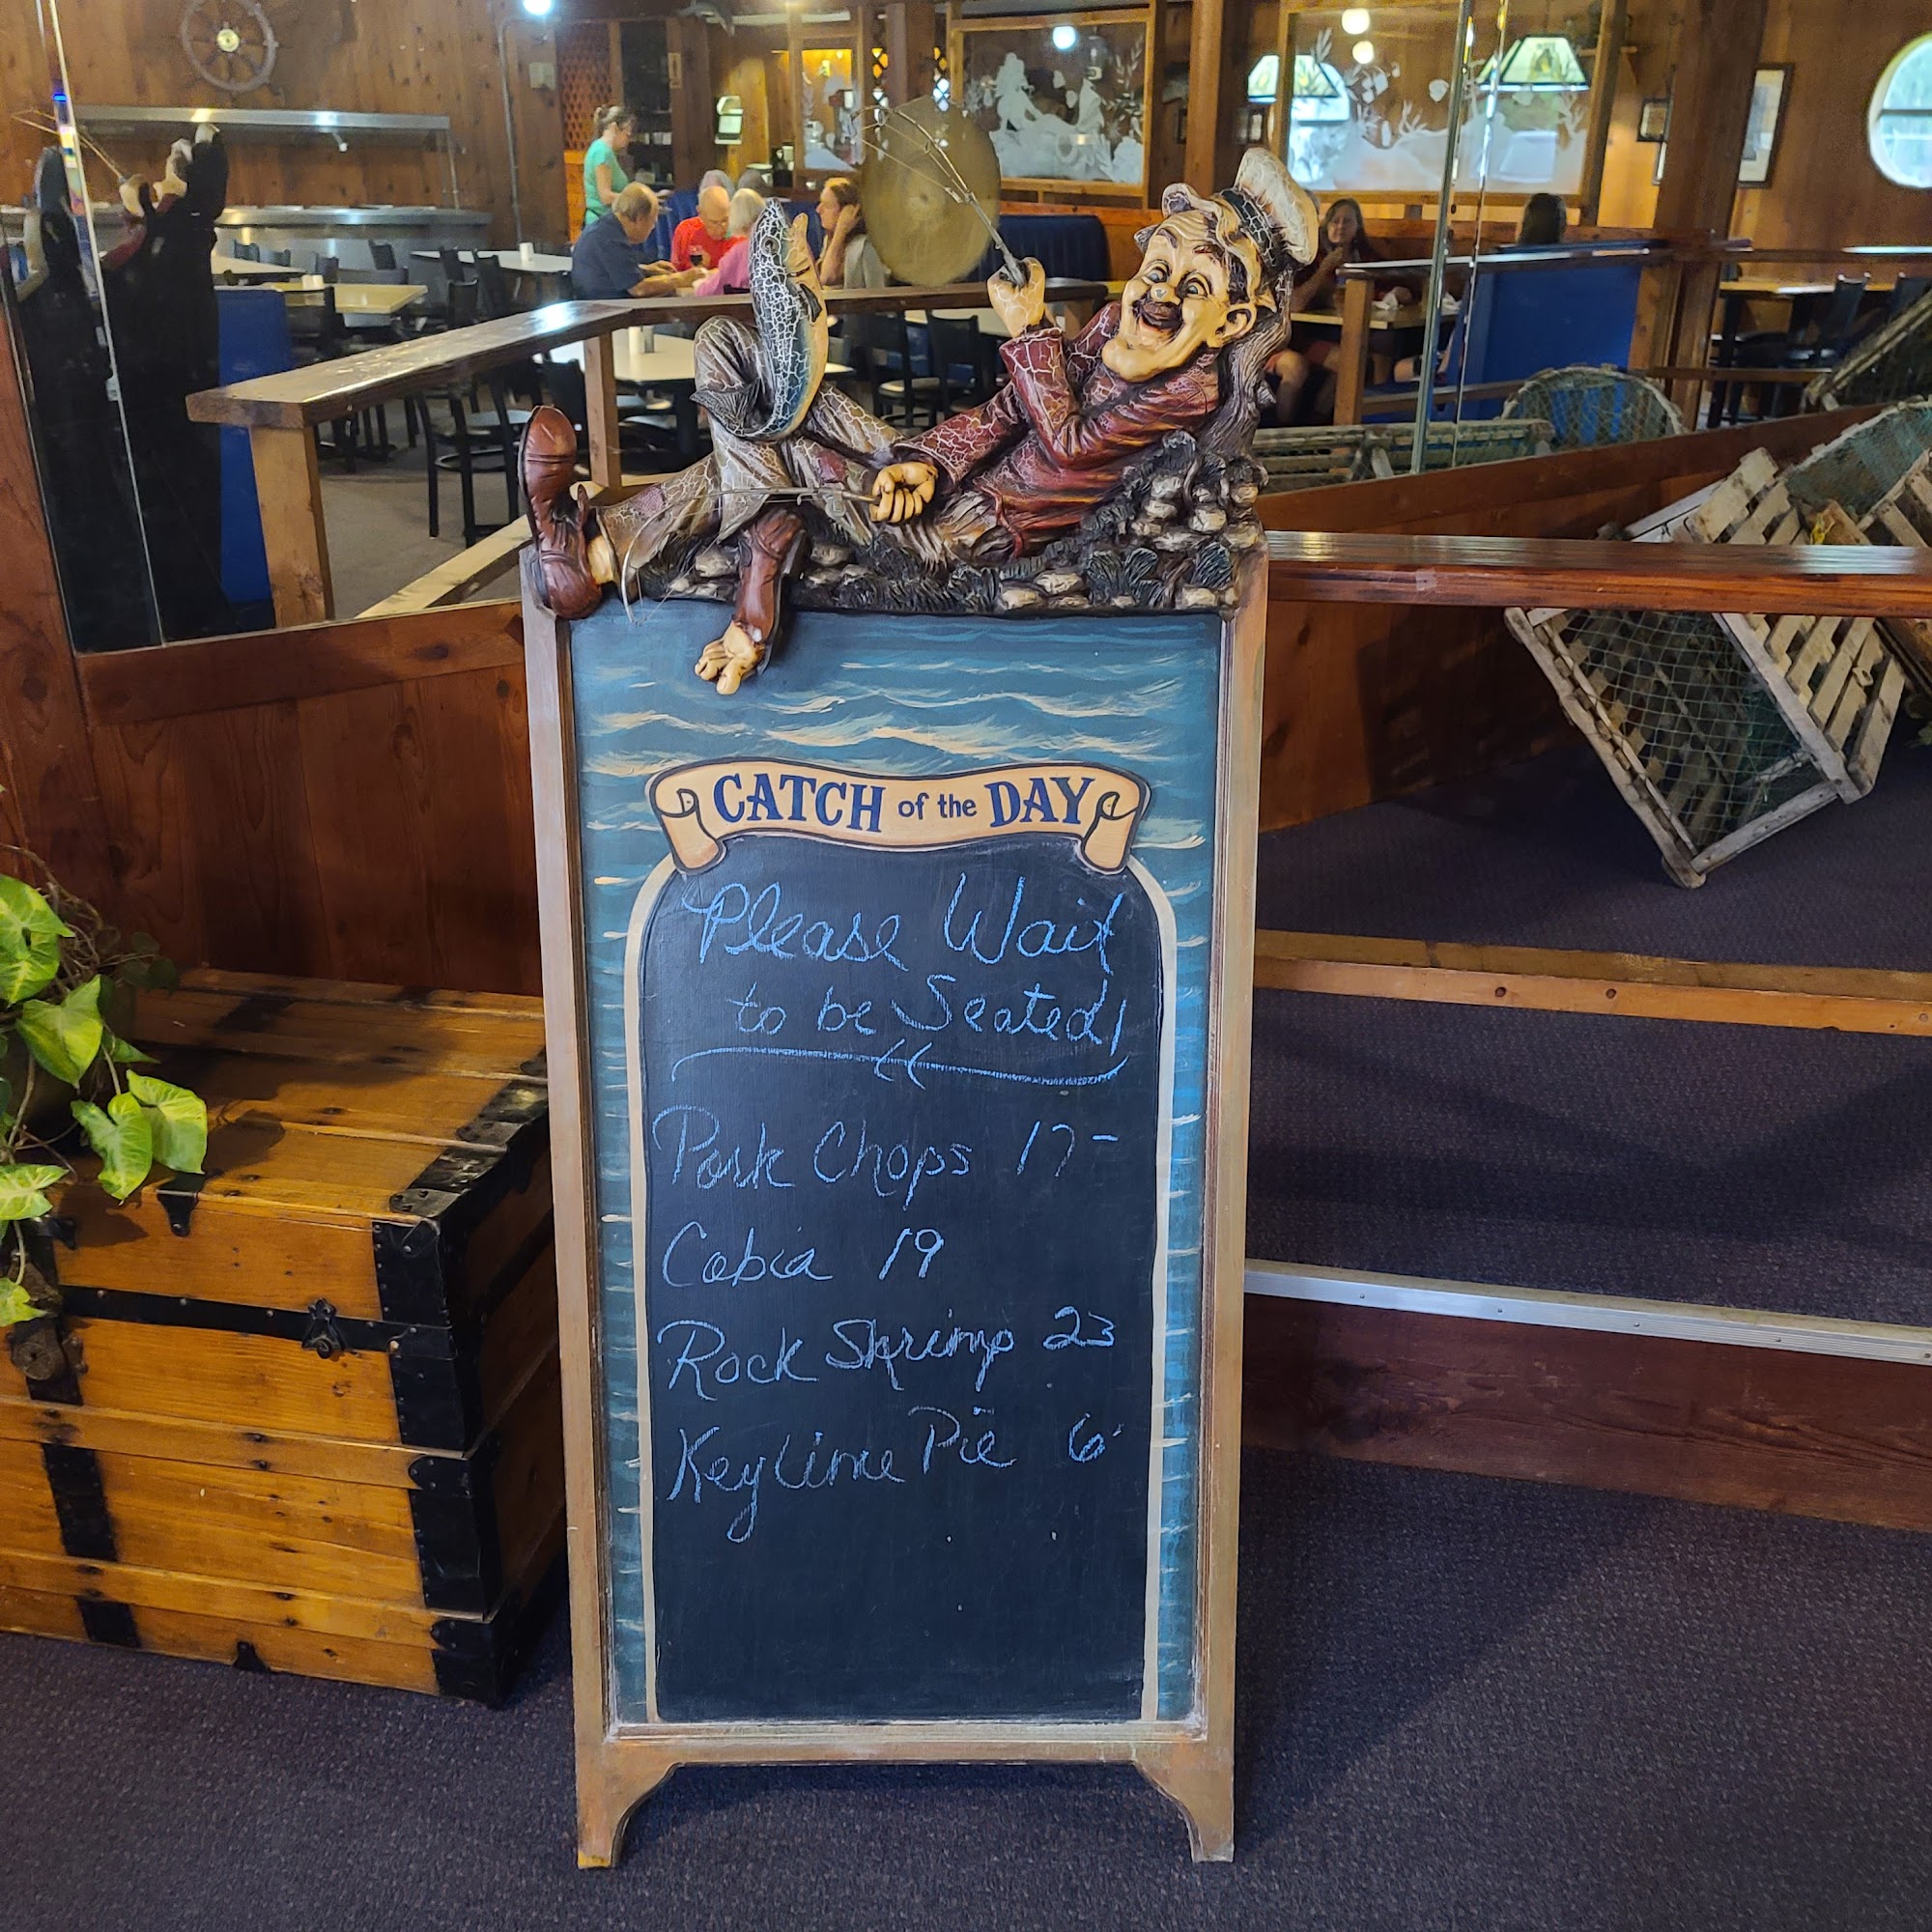 CATCH of the DAY
Please Wait
to be Seated!
Pork Chops 17-
Cobia 19
Rock Shrimp 23
Key Lime Pie 6-